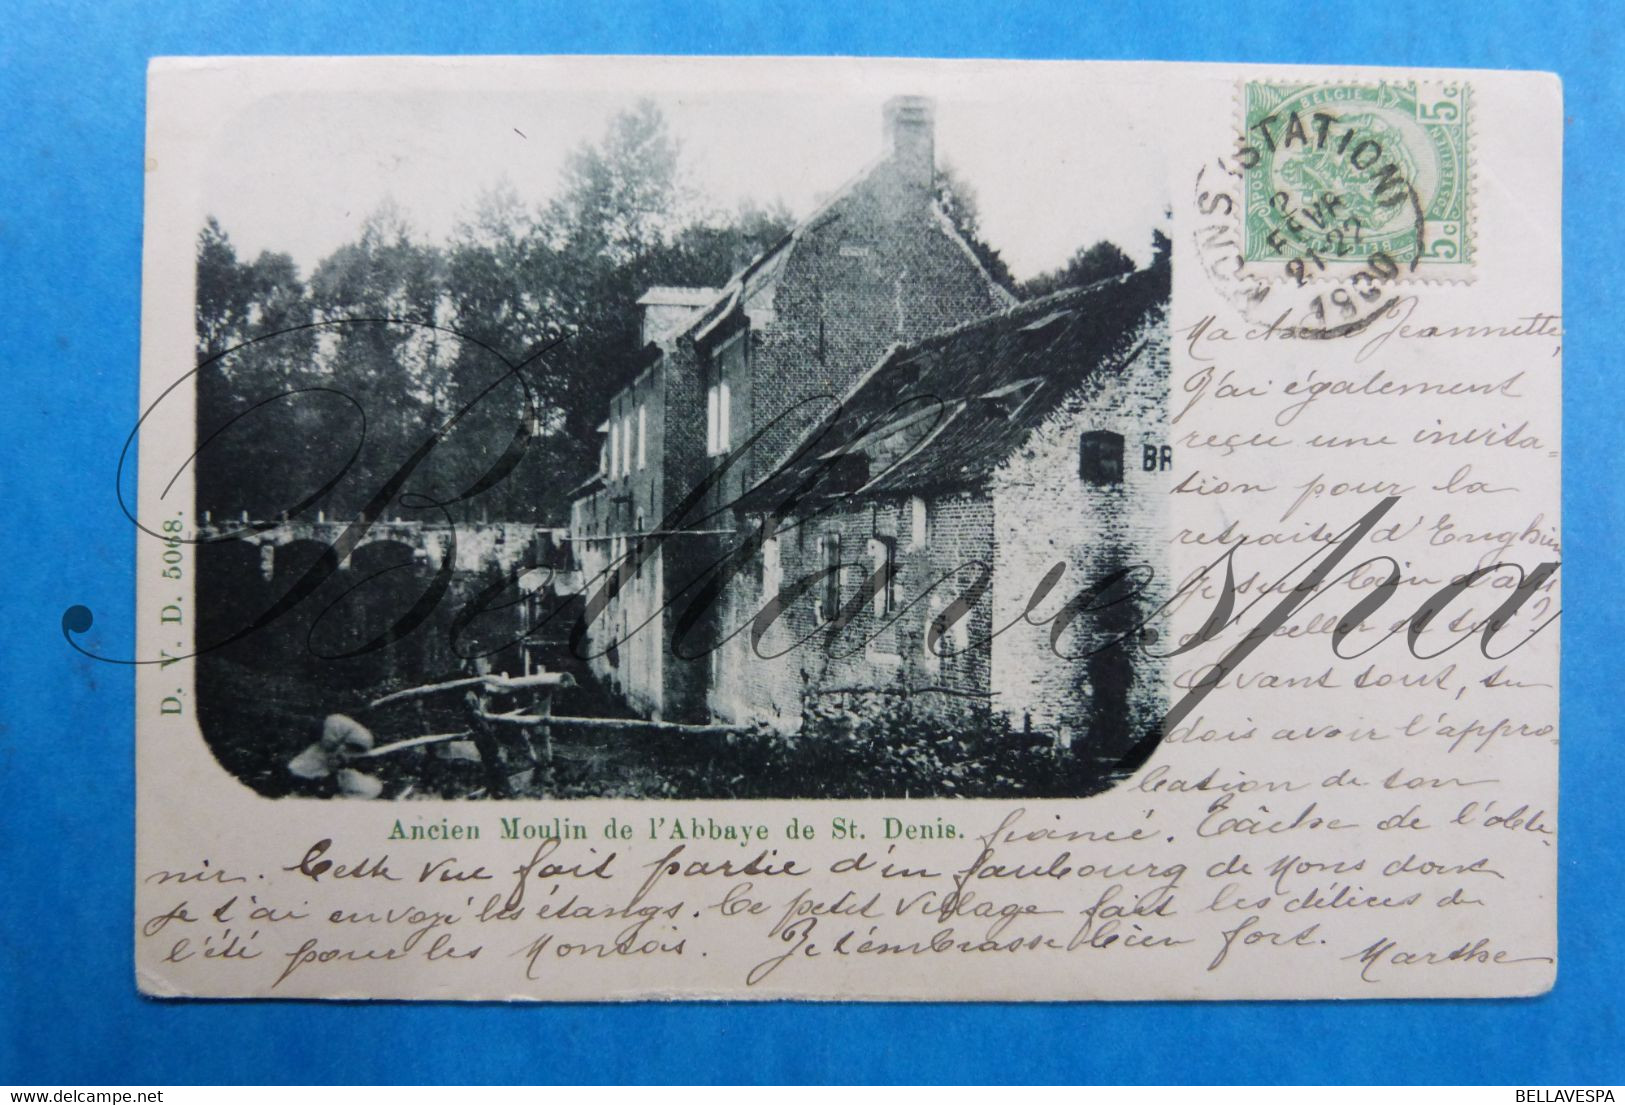 BELGIE
5c
5c
POSTERIJEN
MONS (STATION)
2
FEVR
21-22
1900
Ma chère Jeannette,
J'ai également
reçu une invita-
tion pour la
retraite d'Enghien
Je suis loin d'
d'y aller et toi?
Avant tout, tu
dois avoir l'appro-
bation de ton
BR
D. V. D. 5068.
Ancien Moulin de l'Abbaye de St. Denis.
fiancé. Tâche de l'obte-
nir. Cette vue fait partie d'un faubourg de Mons dont
je t'ai envoyé les étangs. Ce petit village fait les délices de
l'été pour les Montois. Je t'embrasse bien fort. Marthe
Bellavespa
BELLAVESPA